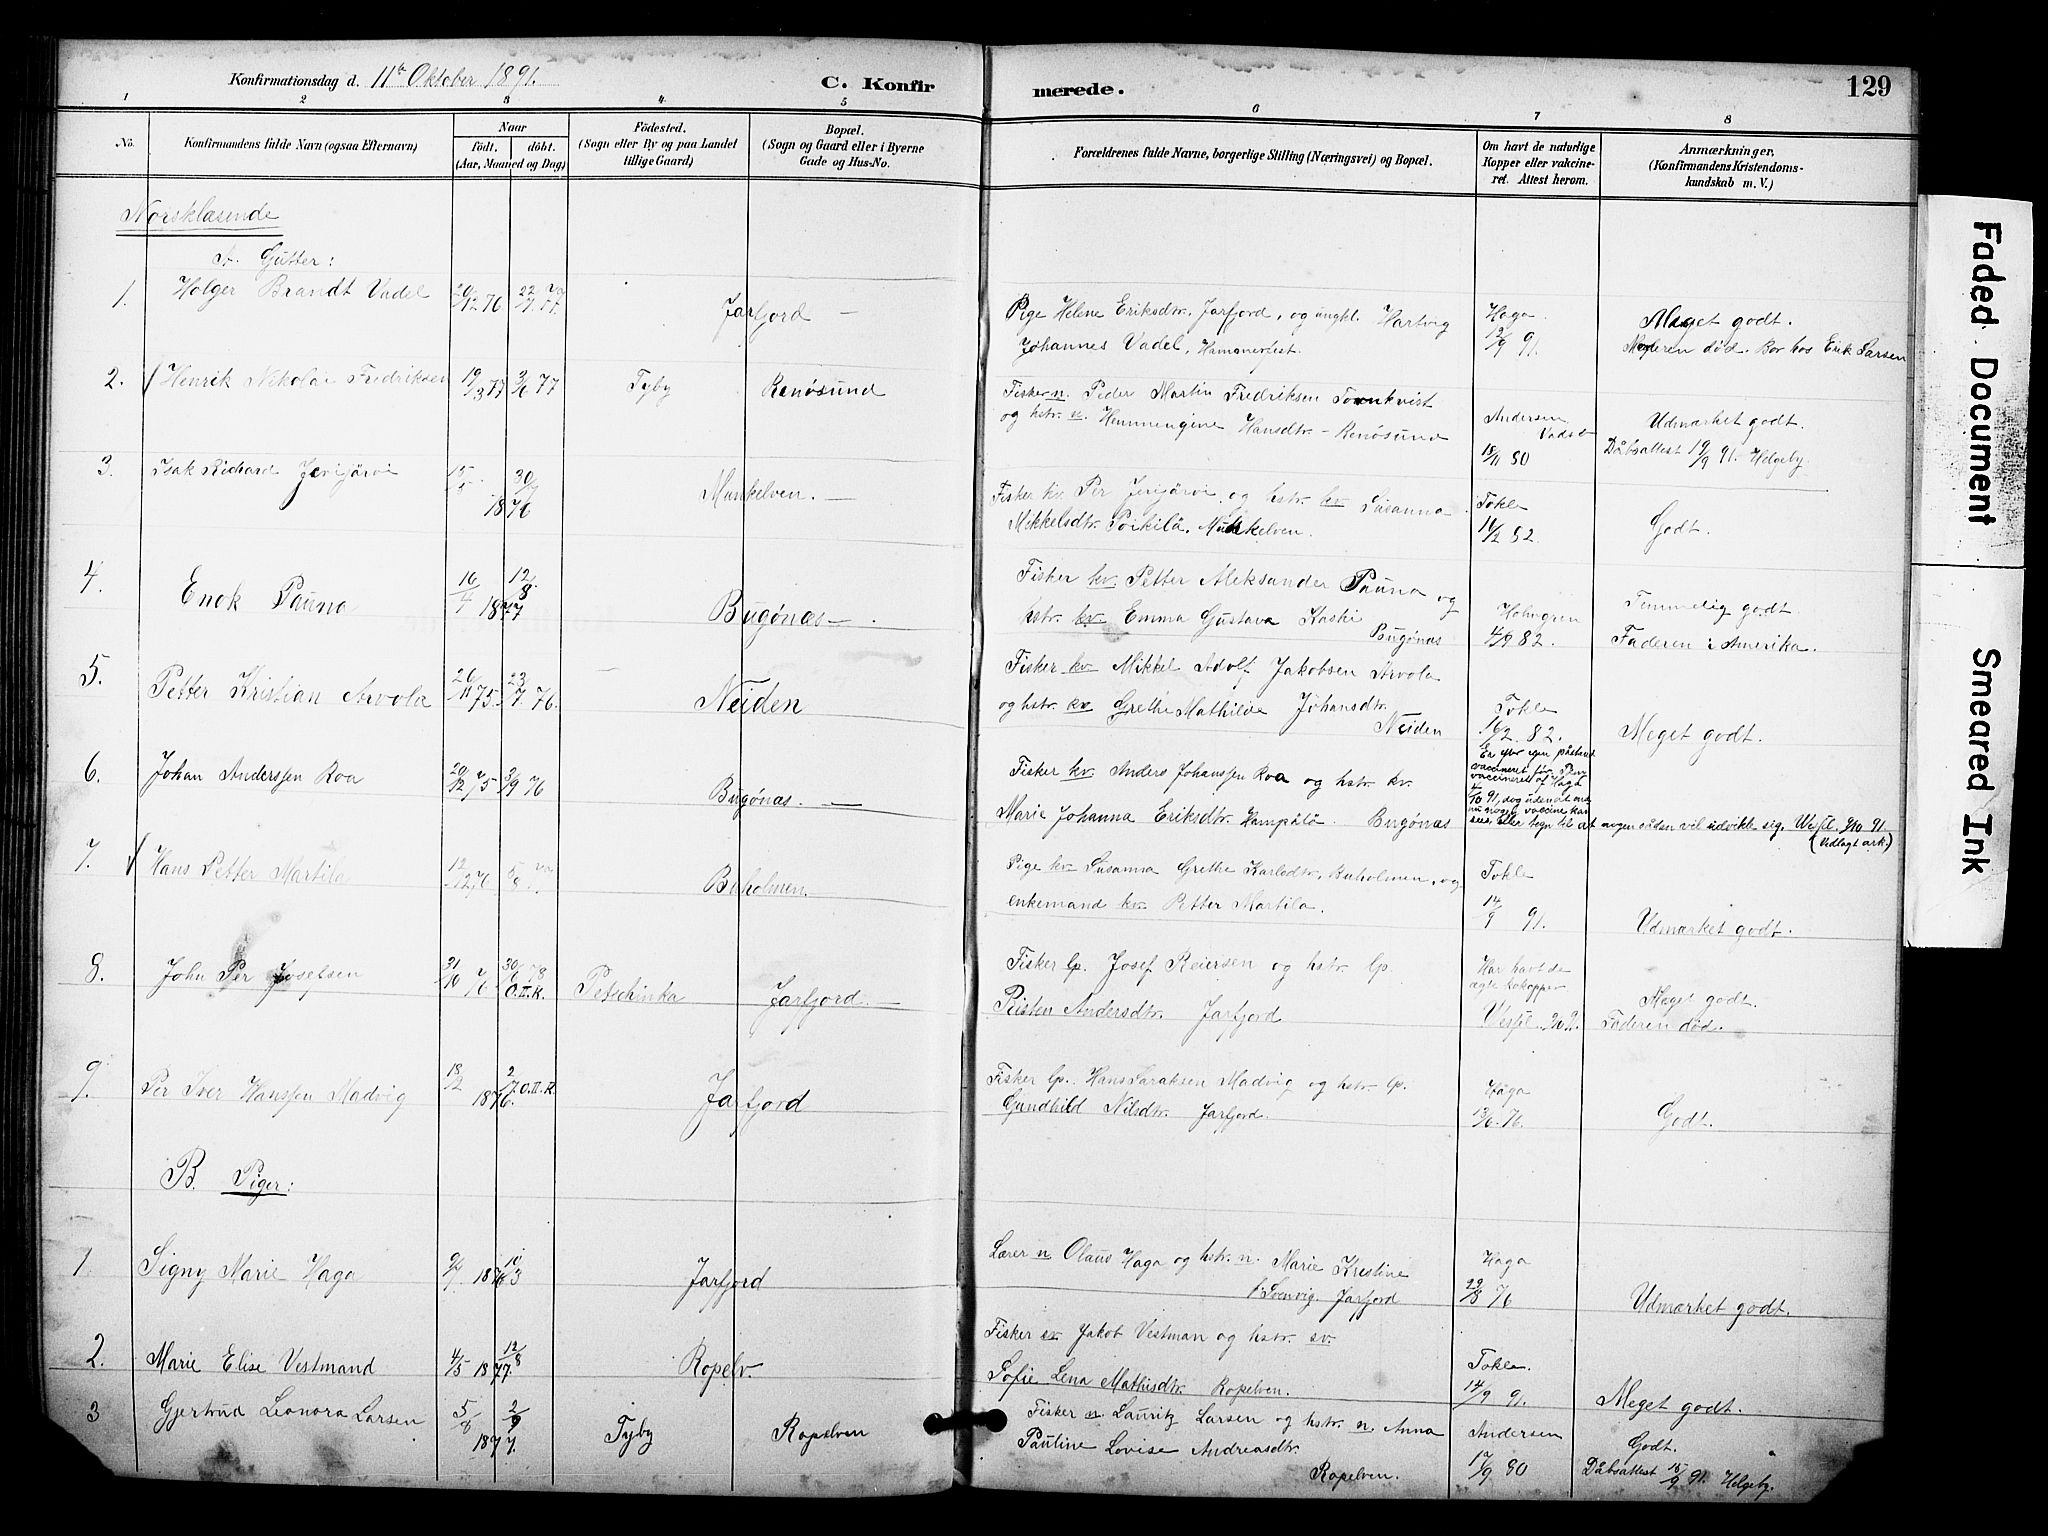 Konfirmationsdag d. 11te Oktober 1891. C. Konfir merede. 129
1 2 3 4 5 6 7 8
No. Konfirmandens fulde Navn (ogsaa Efternavn) Naar født. døbt. (Aar, Maaned og Dag) Födested. (Sogn eller By og paa Landet tillige Gaard) Bopæl. (Sogn og Gaard eller i Byerne Gade og Hus-No. Forældrenes fulde Navne, borgerlige Stilling (Næringsvei) og Bopæl. Om havt de naturlige Kopper eller vakcineret. Attest herom. Anmærkninger, (Konfirmandens Kristendomskundskab m. V.)
Norsklæsende
A. Gutter:
1. Holger Brandt Vadel 20/12 76 Jarfjord —
Pige Helene Eriksdtr. Jarfjord, og ungkl. Hartvig Johannes Vadel, Hammerfest.
Haga 12/9 91. Meget godt. Moderen död. Bor hos Erik Larsen
2. Henrik Nikolai Fredriksen 19/3 77 3/6 77 Tyby Renösund
Fisker n. Peder Martin Fredriksen Tornkvist og hstr. n. Hemmengine Hansdtr. - Renösund
Andersen Vadsö 18/11 80 Udmærket godt. Dåbsattest 19/9 91. Helgeby.
3. Isak Richard Jerijärvi 15/5 30/7 1876 Munkelven. —
Fisker kv. Per Jerijärvi og hstr. kv. Susanna Mikkelsdtr. Poikilä, Munkelven.
Tokle 14/2 82. Godt.
4. Enok Pauna 16/4 12/8 1877 Bugönæs —
Fisker kv. Petter Aleksander Pauna og hstr. kv. Emma Gustava Kaski Bugönæs
Holmgren 4/9 82. Temmelig godt. Faderen i Amerika.
5. Petter Kristian Arvola 26/11 75. 23/7 76. Neiden
Fisker kv. Mikkel Adolf Jakobsen Arvola og hstr. kv. Grethe Mathilde Johansdtr. Neiden
Tokle 16/2 82. Meget godt.
6. Johan Anderssen Roa 20/12 75 3/9 76 Bugönæs. —
Fisker kv. Anders Johanssen Roa og hstr. kv. Marie Johanna Eriksdtr. Bugönæs
Er efter egen påstand vaccineret för. vaccineret af Haga 4/10 91, dog uden at ennu nogen vaccine kan sees, eller tegn til at nogen sådan vil udvikle sig. 91 (Vedlagt ark.)
7. Hans Petter Martila 12/12 76 Buholmen. —
Pige kv. Susanna Grethe Karlsdtr. Buholmen, og enkemand kv. Petter Martila.
Tokle 14/9 91. Udmærket godt.
8. John Per Josefsen 31/10 76 30/6 78 O.II.K. Petschinka Jarfjord. —
Fisker lp. Josef Reiersen og hstr. lp. Risten Andersdtr. Jarfjord
Har havt de ægte kokopper Meget godt. Faderen död.
9. Per Iver Hanssen Madvig 18/2 2/7 O.II.K. 1876. Jarfjord
Fisker lp. Hans Saraksen Madvig og hstr. lp. Gundhild Nilsdtr. Jarfjord.
Haga 13/6 76. Godt.
B. Piger:
1. Signy Marie Haga 1876 Jarfjord
Lærer n Olaus Haga og hstr. n. Marie Kristine f. Svenvig. Jarfjord
Haga 29/8 76 Udmærket godt.
2. Marie Elise Vestmand 4/5 1877. 12/8 Ropelv.
Fisker sv. Jakob Vestman og hstr. sv. Sofie Lena Mathisdtr. Ropelven.
Tokle. 14/9 91. Meget godt.
3 Gjertrud Leonora Larsen 5/6 2/9 1877. Tyby Ropelven
Fisker n. Lauritz Larsen og hstr. n. Anna Pauline Lovise Andreasdtr. Ropelven.
Andersen 17/9 80 Godt. Dåbsattest 15/9 91. Helgeby.
Faded Document
Smeared Ink